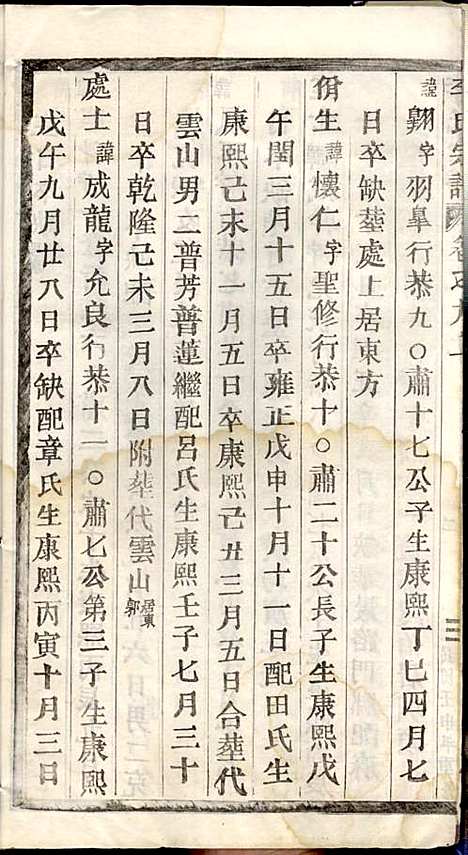 諱翱字羽皐行恭九○肅十七公子生康熙丁巳四月七
日卒缺塟處上居東方
佾生諱懷仁字聖修行恭十○肅二十公長子生康熙戊
午閏三月十五日卒雍正戊申十月十一日配田氏生
康熙己未十一月五日卒康熙己丑三月五日合塟代
雲山男二普芳普蓮繼配呂氏生康熙壬子七月三十
日卒乾隆己未三月八日附塟代雲山居東郭
處士諱成龍字允良行恭十一○肅七公第三子生康熙
戊午九月廿八日卒缺配章氏生康熙丙寅十月三日